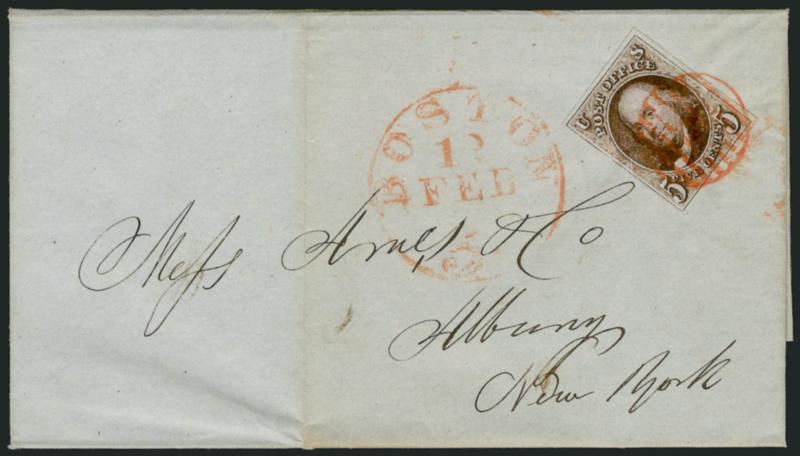 U S
POST OFFICE
5 5
FIVE CENTS
BOSTON
12
FEB
Mess
& Co
Albany
New York